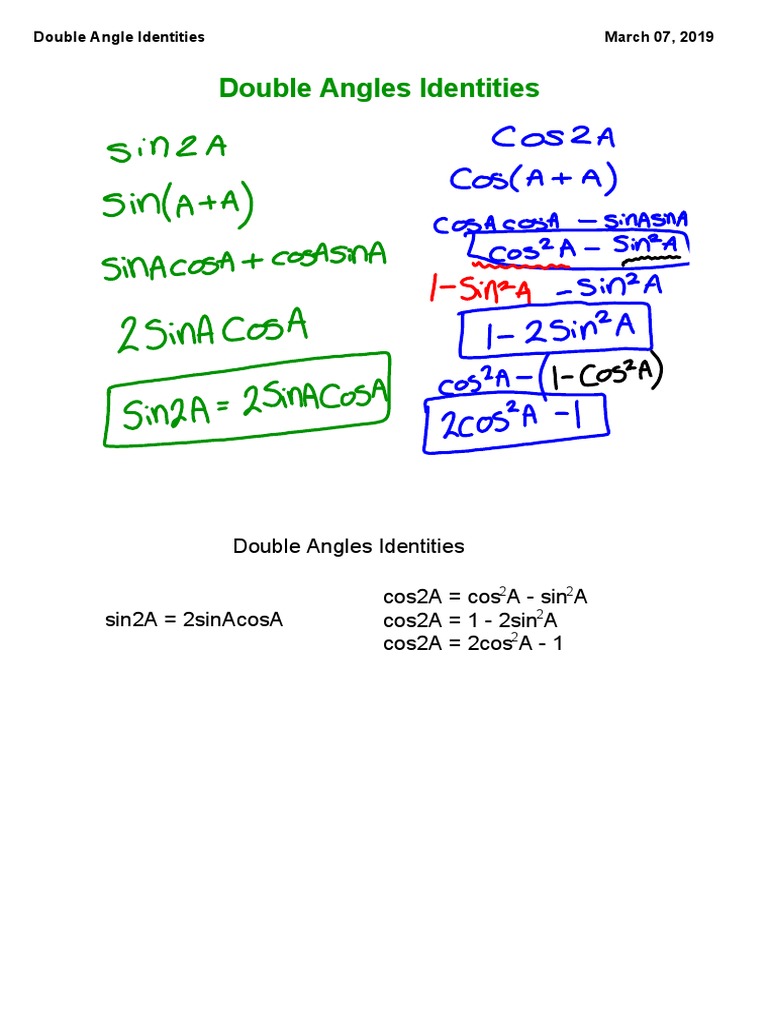 Double Angle Identities March 07, 2019
Double Angles Identities
sin2A
sin(A+A)
sinAcosA + cosAsinA
2SinACosA
Sin2A = 2SinACosA
Cos2A
Cos(A + A)
cosAcosA - sinAsnA
cos²A - Sin²A
1-Sin²A - Sin²A
1- 2Sin²A
cos²A - (1-Cos²A)
2cos²A -1
Double Angles Identities
sin2A = 2sinAcosA
cos2A = cos²A - sin²A
cos2A = 1 - 2sin²A
cos2A = 2cos²A - 1